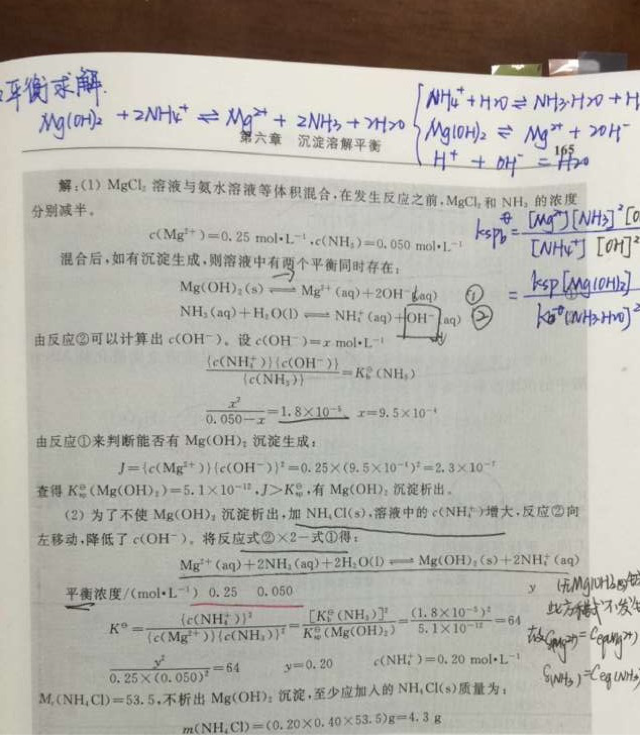 平衡求解.
Mg(OH)₂ + 2NH₄⁺ ⇌ Mg²⁺ + 2NH₃ + 2H₂O
NH₄⁺ + H₂O ⇌ NH₃·H₂O + H
Mg(OH)₂ ⇌ Mg²⁺ + 2OH⁻
H⁺ + OH⁻ = H₂O
第六章 沉淀溶解平衡 165
解:(1) MgCl₂ 溶液与氨水溶液等体积混合,在发生反应之前,MgCl₂ 和 NH₃ 的浓度
分别减半。
c(Mg²⁺)=0.25 mol·L⁻¹,c(NH₃)=0.050 mol·L⁻¹
混合后,如有沉淀生成,则溶液中有两个平衡同时存在:
Mg(OH)₂(s) ⇌ Mg²⁺(aq)+2OH⁻(aq) ①
NH₃(aq)+H₂O(l) ⇌ NH₄⁺(aq)+OH⁻(aq) ②
= [Mg²⁺][NH₃]²[O / [NH₄⁺] [OH]²
= Ksp[Mg(OH)₂] / Kb^⊖(NH₃·H₂O)²
由反应②可以计算出 c(OH⁻)。设 c(OH⁻)=x mol·L⁻¹
{c(NH₄⁺)}{c(OH⁻)} / {c(NH₃)} = K_b^⊖(NH₃)
x² / 0.050−x = 1.8×10⁻⁵, x=9.5×10⁻⁴
由反应①来判断能否有 Mg(OH)₂ 沉淀生成:
J={c(Mg²⁺)}{c(OH⁻)}²=0.25×(9.5×10⁻⁴)²=2.3×10⁻⁷
查得 K_sp^⊖(Mg(OH)₂)=5.1×10⁻¹²,J>K_sp^⊖,有 Mg(OH)₂ 沉淀析出。
(2) 为了不使 Mg(OH)₂ 沉淀析出,加 NH₄Cl(s),溶液中的 c(NH₄⁺)增大,反应②向
左移动,降低了 c(OH⁻)。将反应式②×2−式①得:
Mg²⁺(aq)+2NH₃(aq)+2H₂O(l) ⇌ Mg(OH)₂(s)+2NH₄⁺(aq)
平衡浓度/(mol·L⁻¹) 0.25 0.050 y
K^⊖ = {c(NH₄⁺)}² / {c(Mg²⁺)}{c(NH₃)}² = [K_b^⊖(NH₃)]² / K_sp^⊖(Mg(OH)₂) = (1.8×10⁻⁵)² / 5.1×10⁻¹² = 64
y² / 0.25×(0.050)² = 64 y=0.20 c(NH₄⁺)=0.20 mol·L⁻¹
M_r(NH₄Cl)=53.5,不析出 Mg(OH)₂ 沉淀,至少应加入的 NH₄Cl(s)质量为:
m(NH₄Cl)=(0.20×0.40×53.5)g=4.3 g